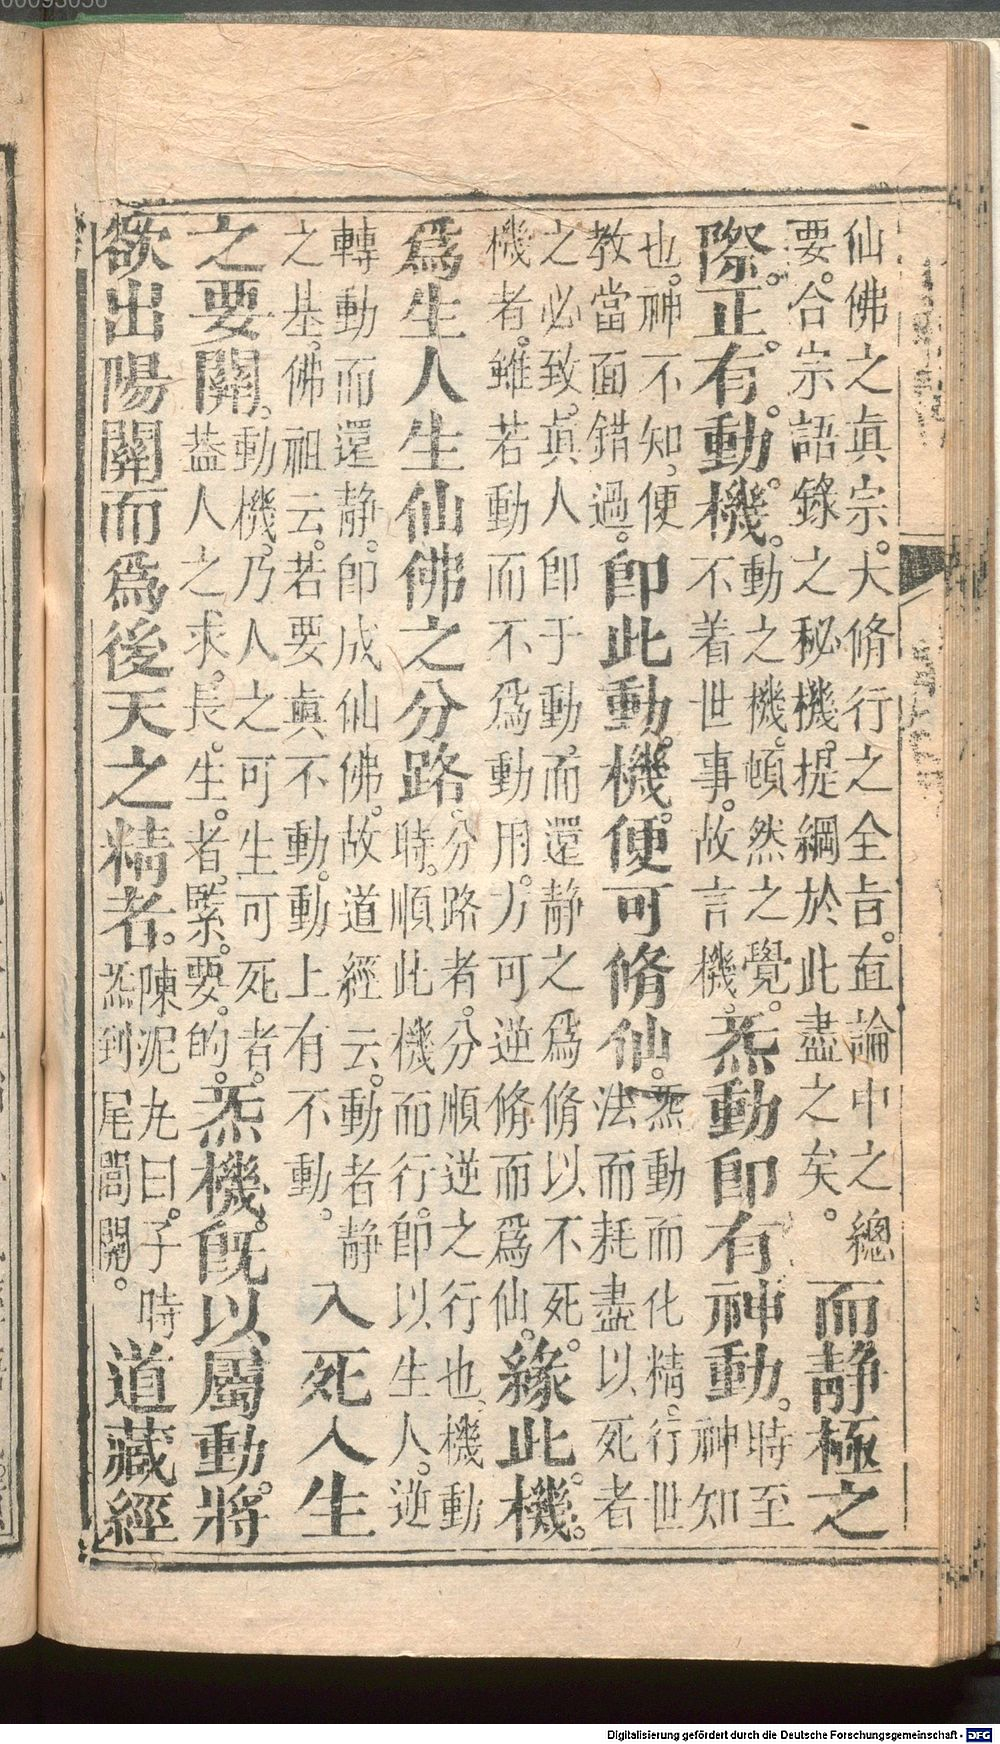 仙佛之真宗。大脩行之全旨。直論中之總
要。合宗語錄之秘機。提綱於此盡之矣。而靜極之
際。正。有。動。機。動之機。頓然之覺。時至
不着世事。故言機。炁動即有神動。神知
也。神不知、便即此動。機。便可脩仙。炁動而化精。行世
教當面錯過。法而耗盡以死者
之必致。真人即于動。而還靜之爲脩以不死。緣此。機。
機者。雖若動而不爲動用。方可逆脩而爲仙。
爲生人生仙佛之分路。分路者。分順逆之行也、機動
時。順此機而行。即以生人。逆
轉動而還靜。即成仙佛。故道經云。動者靜
之基。佛祖云。若要真不動。動上有不動。入死入生
之要關。動機。乃人之可生可死者。炁機。既以屬動。將
蓋人之求。長。生。者。緊。要。的。
欲出陽關而爲後天之精者。陳泥丸曰。子時道藏經
炁到尾閭關。
00093056
Digitalisierung gefördert durch die Deutsche Forschungsgemeinschaft - DFG